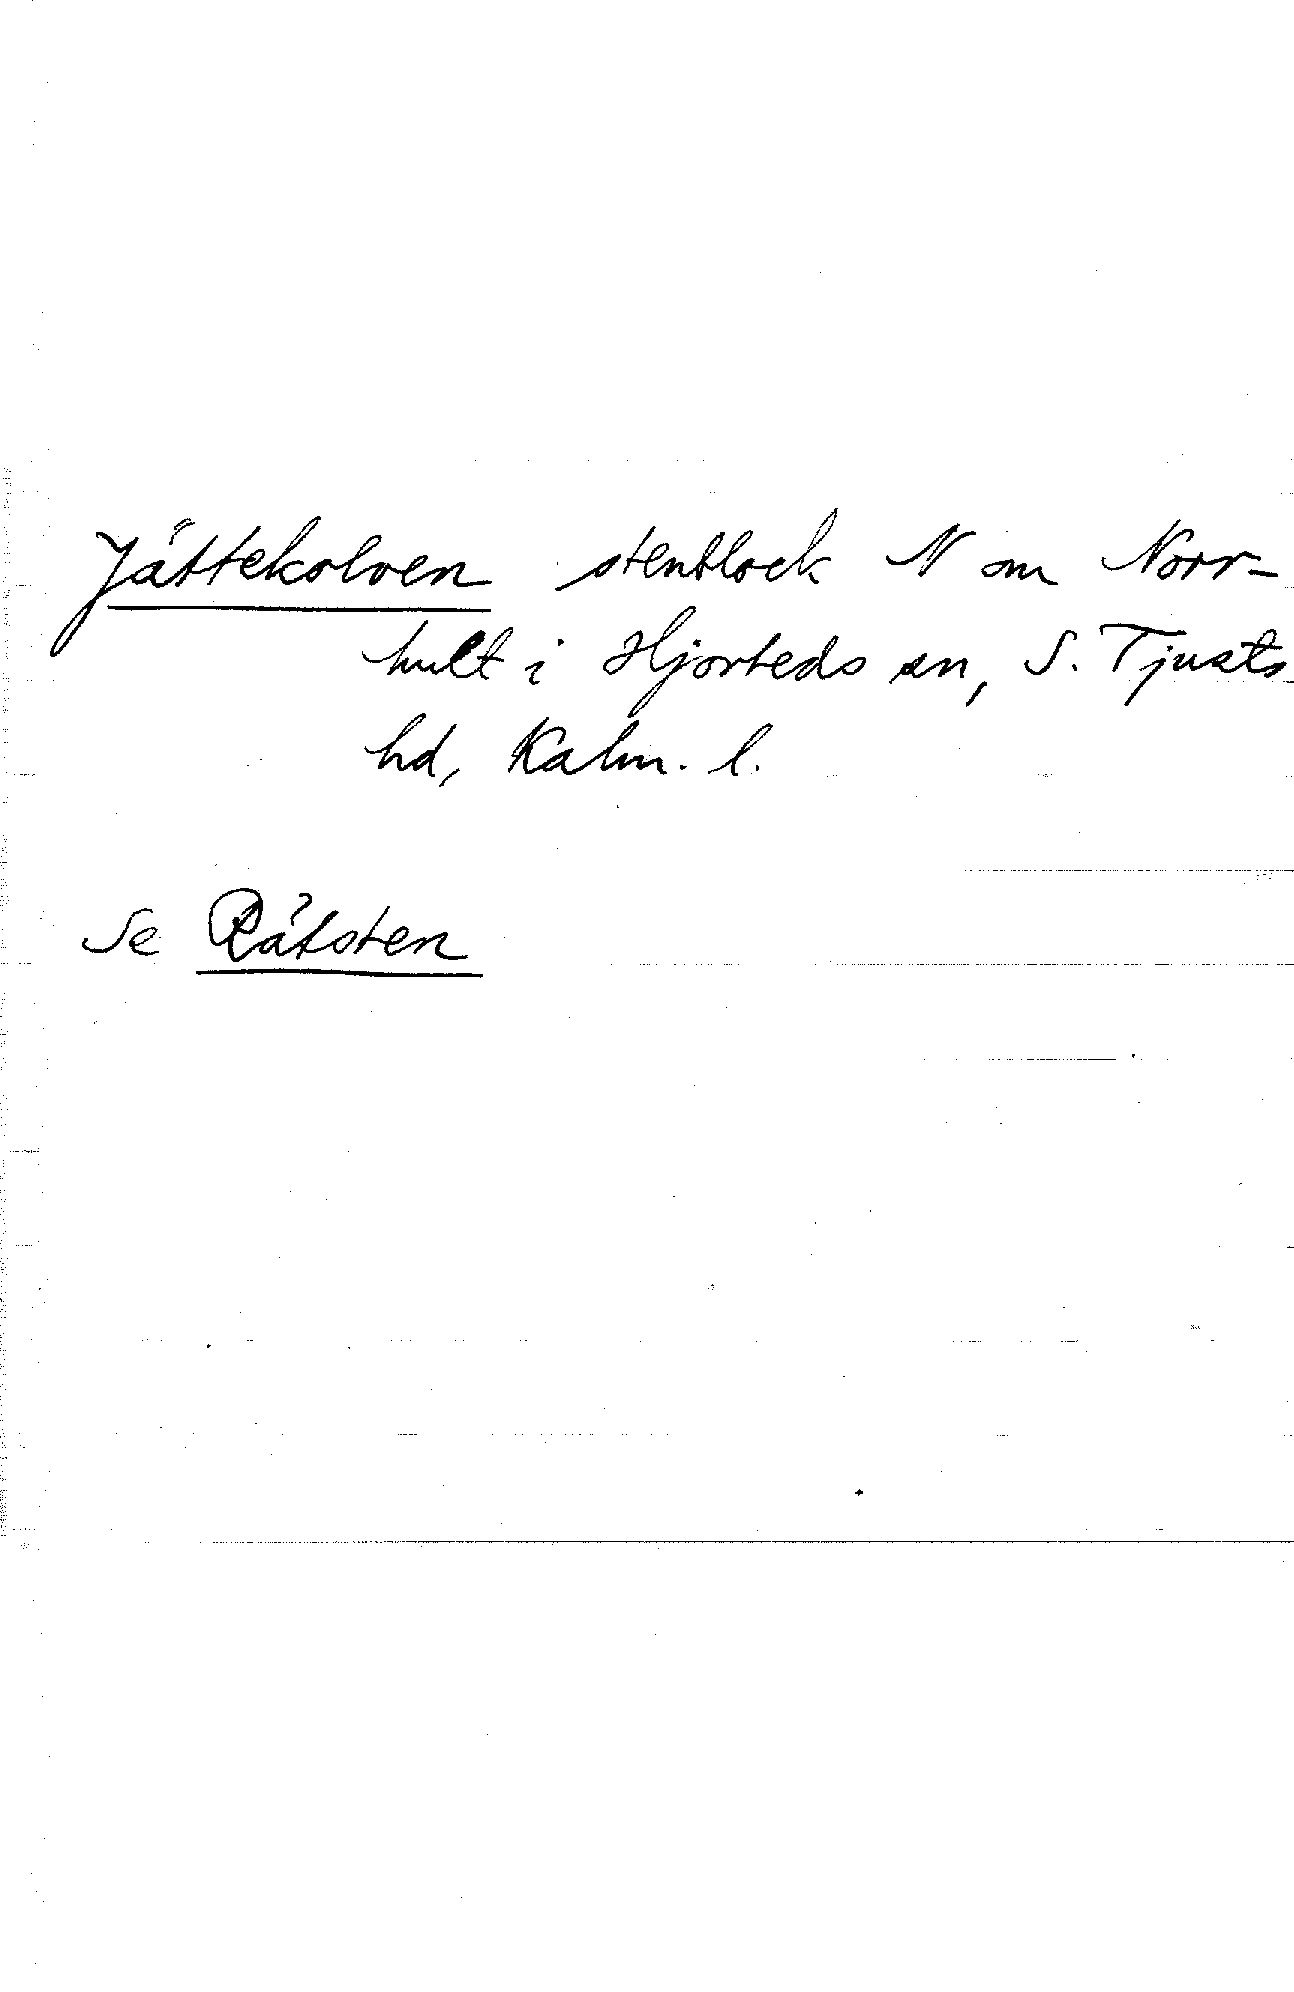 Jättekolven stenblock N om Norr-
hult i Hjorteds sn, S. Tjusts
hd, Kalm. l.
Se Råtsten